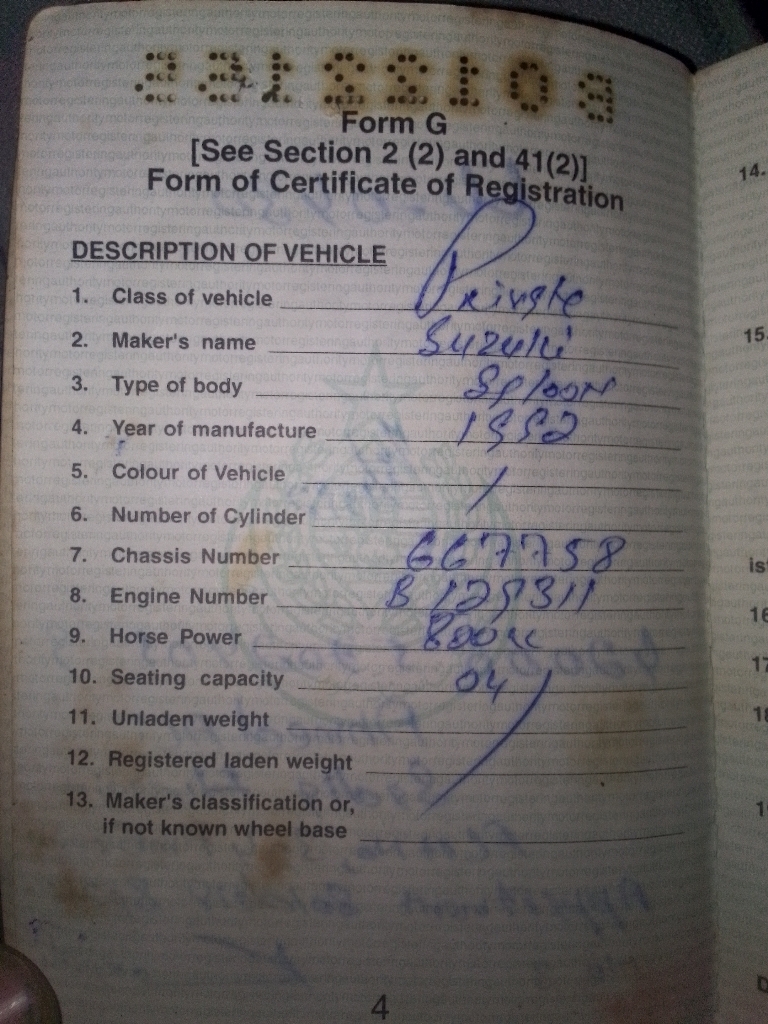 Form G
[See Section 2 (2) and 41(2)]
Form of Certificate of Registration
DESCRIPTION OF VEHICLE
1. Class of vehicle Private
2. Maker's name Suzuki
3. Type of body Saloon
4. Year of manufacture 1992
5. Colour of Vehicle
6. Number of Cylinder
7. Chassis Number 667758
8. Engine Number B 129311
9. Horse Power 800cc
10. Seating capacity 04
11. Unladen weight
12. Registered laden weight
13. Maker's classification or,
if not known wheel base
4
14.
15.
16
17
18